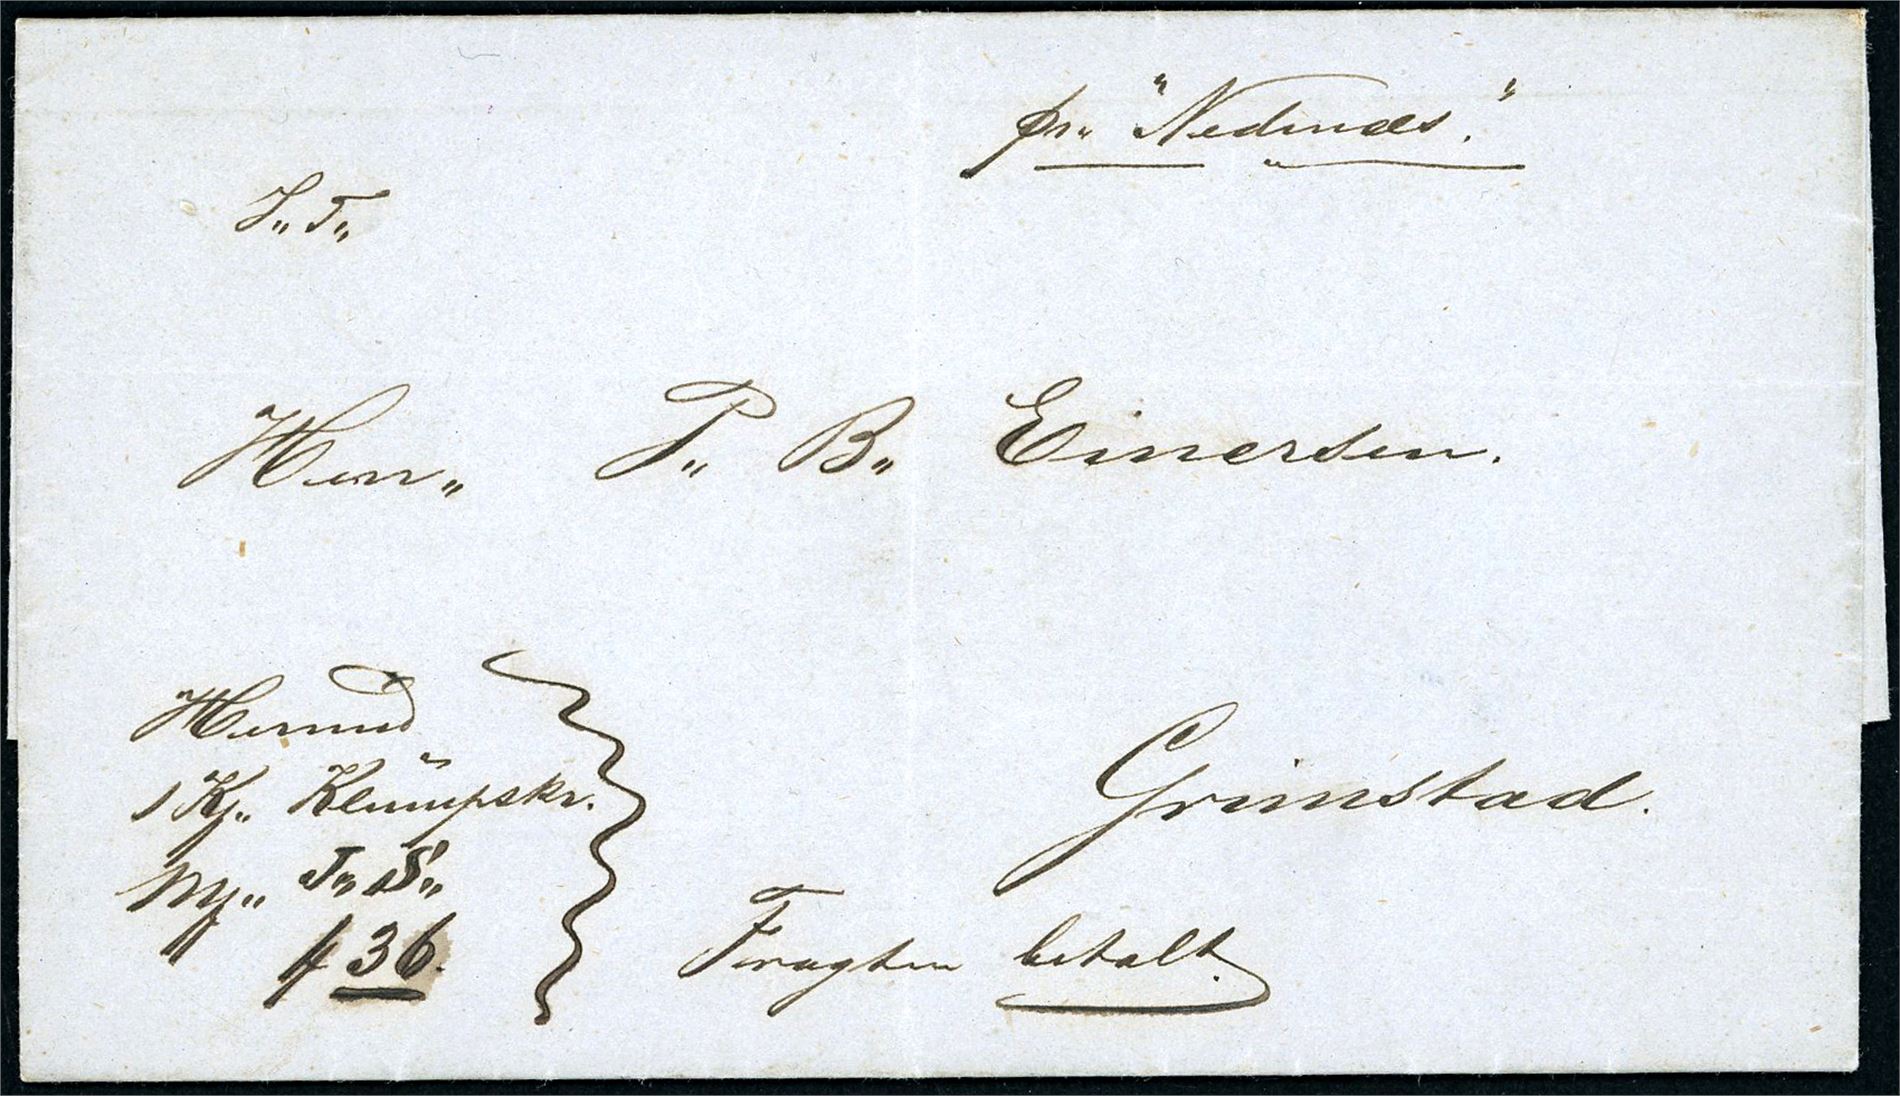 pr„ "Nedenæs."
S„ T„
Herr„ P„ B„ Einersen.
Hermed
1 Kj„
Mk„ J„ S„
# 36.
Grimstad.
Fragten betalt.